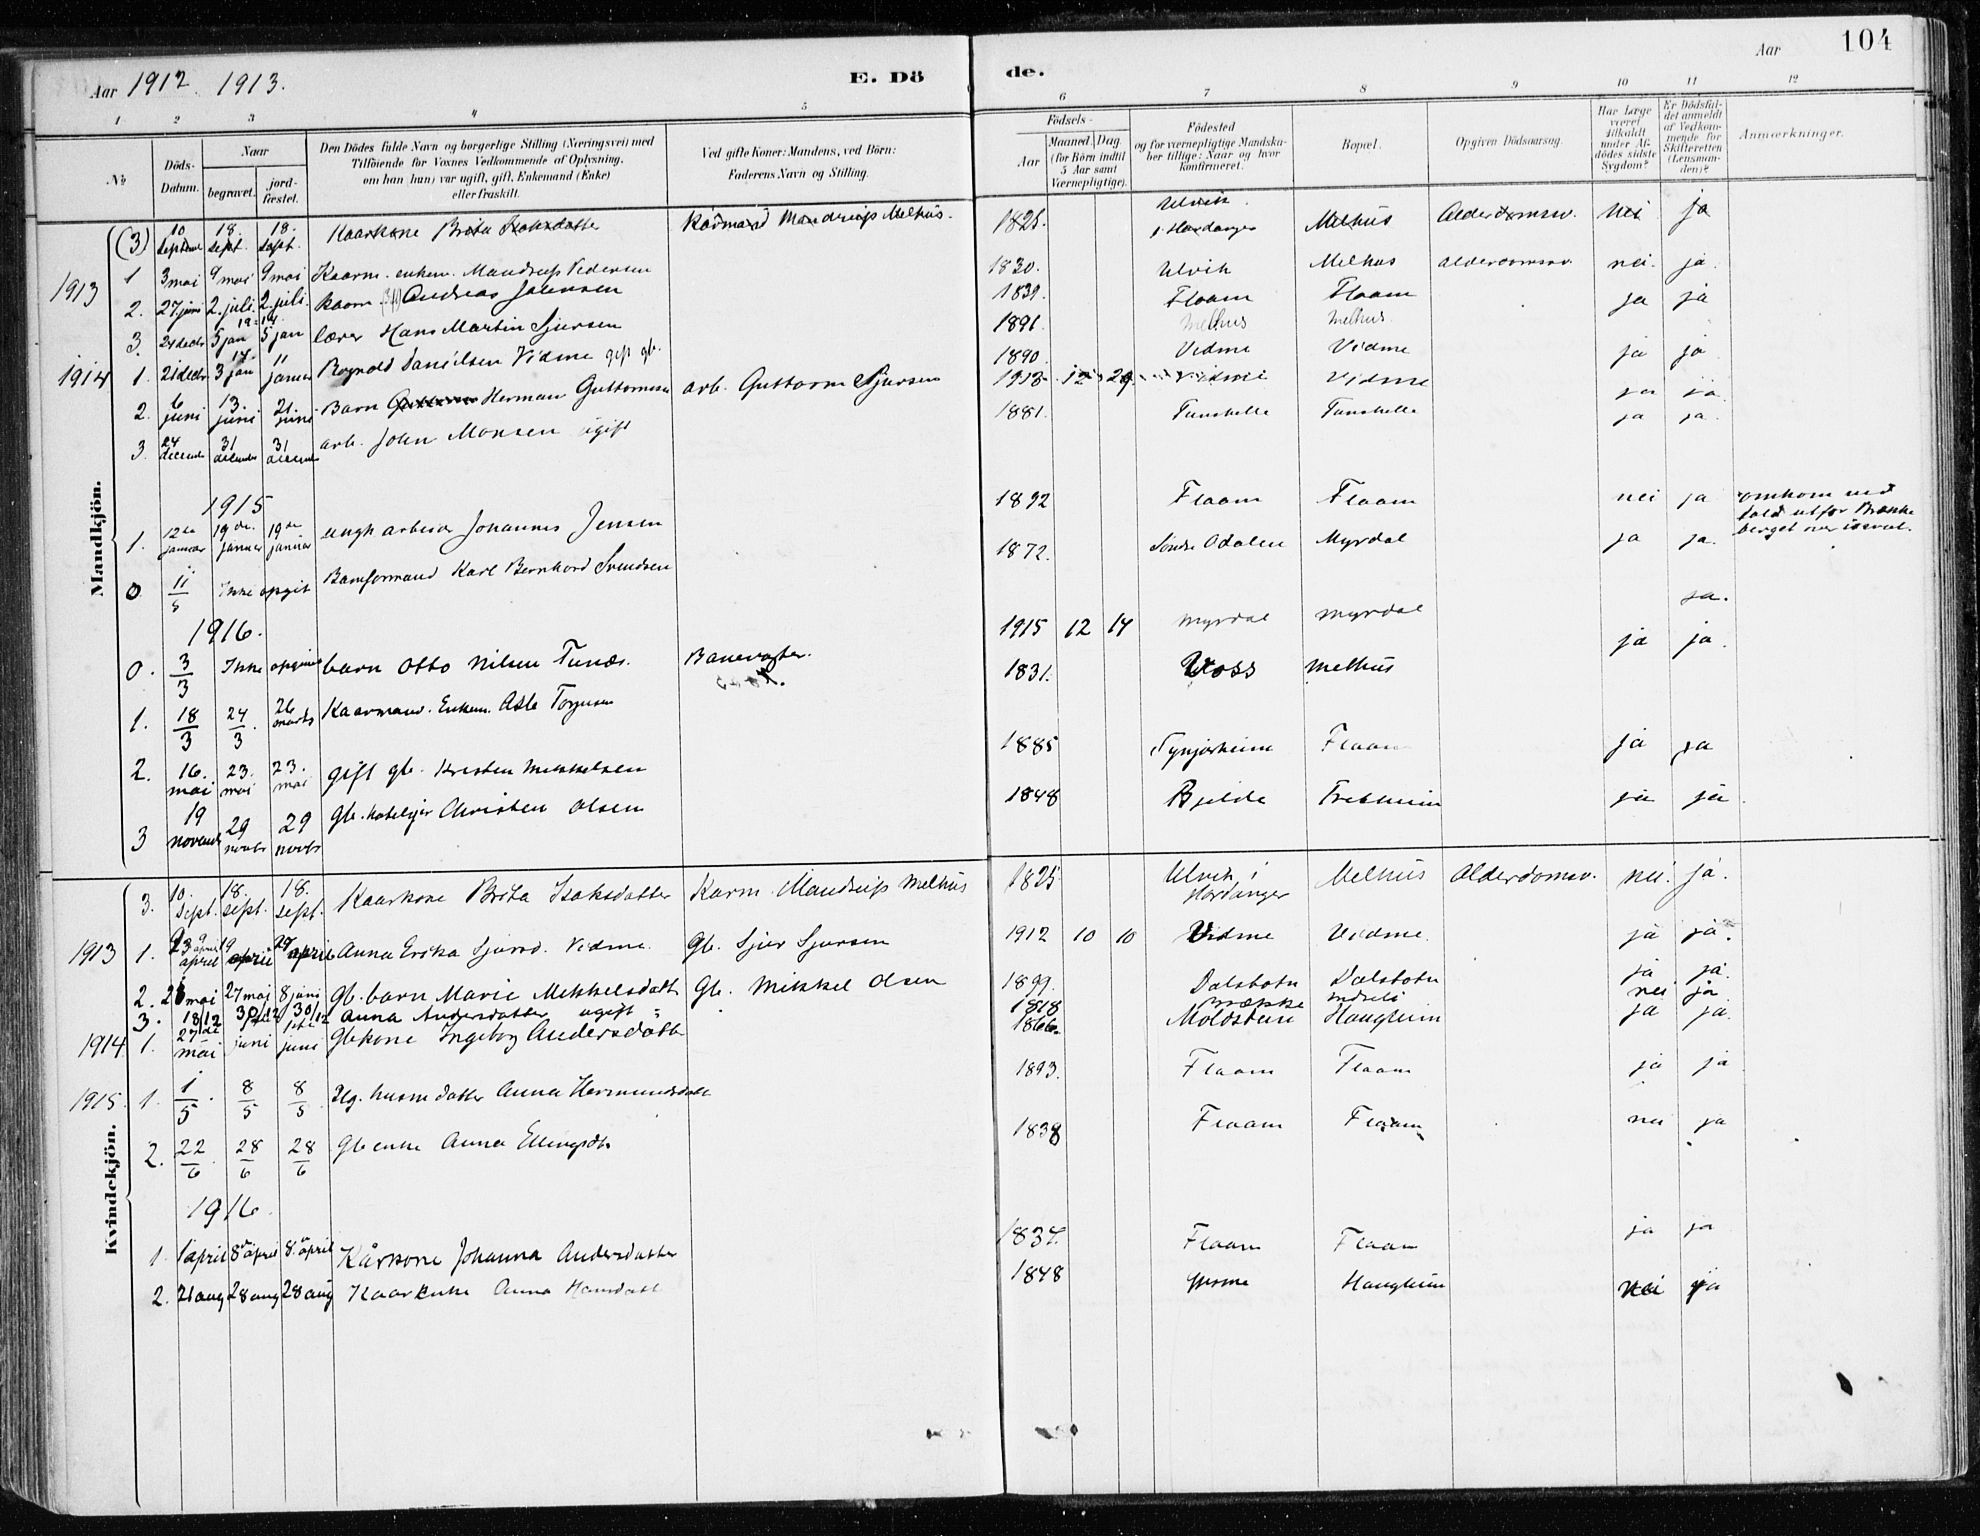 Aar 1912. 1913.
E. Dö
de.
Aar
104
1 2 3 4 5 6 7 8 9 10 11 12
№
Döds-Datum.
Naar
begravet.
jord-fæstet.
Den Dödes fulde Navn og borgerlige Stilling (Næringsvei) med
Tilföiende for Voxnes Vedkommende af Oplysning.
om han (hun) var ugift, gift, Enkemand (Enke)
eller fraskilt.
Ved gifte Koner: Mandens, ved Börn:
Faderens Navn og Stilling.
Födsels-
Aar
Maaned. Dag.
(for Börn indtil
5 Aar samt
Værnepligtige).
Födested
og for værnepligtige Mandska-
ber tillige: Naar og hvor
konfirmeret.
Bopæl.
Opgiven Dödsaarsag.
Har Læge
været
tilkaldt
under Af-
dödes sidste
Sygdom?
Er Dödsfal-
det anmeldt
af Vedkom-
mende for
Skifteretten
(Lensman-
den)?
Anmærkninger.
Mandkjön.
(3) 10 septbr 18. sept. 18. sept. Kaarkone Brita Isaksdatter Kårmand Mandrup Melhus. 1825. Ulvik i Hardanger Melhus Alderdomssv. Nei ja
1913 1 3 mai 9 mai 9 mai Kaarm. enkem. Mandrup Pedersen 1830. Ulvik Melhus alderdomssv. nei. ja.
2. 27 juni 2. juli. 2. juli. kaarm. Andreas Johnsen 1839. Flaam Flaam ja ja
3. 24 decbr 5 jan 19-14 5 jan lærer Hans Martin Sjursen 1891. Melhus Melhus.
1914 1. 21 decbr 3 jan 14. 11 januar Rognald Danielsen Vidme gift gb. 1890. Vidme Vidme ja ja.
2. 6 juni 13. juni 21. juni Barn Herman Guttormsen arb. Guttorm Sjursen 1913. 12 29 Vidme Vidme ja ja.
3. 24 december 31 december 31 december arb. John Monsen ugift 1881. Tunshelle Tunshelle ja ja.
1915
1. 12te januar 19de. januar 19de januar ungk arbeider Johannes Jensen 1892 Flaam Flaam nei ja omkom ved
fald utfor Brække
berget over isvul.
0 11/5 Ikke opgit Banformand Karl Bernhard Svendsen 1872. Søndre Odalen Myrdal ja ja.
1916.
0. 3/3 Ikke opgivet barn Otto Nilsen Tunæs. Banevogter. 1915 12 14 Myrdal Myrdal ja.
1. 18/3 24/3. 26 marts Kaarmand. Enkem. Asle Torgusen 1831. Voss Melhus ja ja.
2. 16. mai 23. mai 23. mai gift gb. Kristen Mikkelsen 1885 Tynjarheim Flaam ja ja
3 19 novembr 29 novbr 29 novbr Gb. hotelejer Christen Olsen 1848 Bjelde Fretheim ja ja.
Kvindekjön.
3. 10. sept. 18. sept. 18. sept. Kaarkone Brita Isaksdatter Karm. Mandrup Melhus 1825 Ulvik i Hardanger Melhus Alderdomssv. nei. ja.
1913 1. 9 april 19 april 27 april Anna Erika Sjursd. Vidme. Gb. Sjur Sjursen 1912 10 10 Vidme Vidme. ja ja.
2. 21 mai 27 mai 8 juni gb. barn Marie Mikkelsdatt Gb. Mikkel Olsen 1899. Dalsbotn Dalsbotn ja ja.
3. 18/12 30/12 30/12 Anna Andersdatter ugift 1818 Brække Indreli nei ja
1914 1. 27de mai 1ste juni 1ste juni Gbkone Ingebog Andersdatter 1866. Moldstene Haugheim ja ja.
1915. 1. 1/5. 8/5 8/5 Ug. husm datter Anna Hermundsdatt 1893. Flaam Flaam ja ja
2. 22/6. 28/6 28/6 Gb enke Anna Ellingsdtr 1838 Flaam Flaam nei ja
1916.
1. 1 april 8de april 8. de april Kårkone Johanna Andersdatter 1834. Flaam Flaam ja ja
2. 21 aug 28 aug 28 aug Kaarkenke Anna Hansdatt 1848 Haugheim nei ja